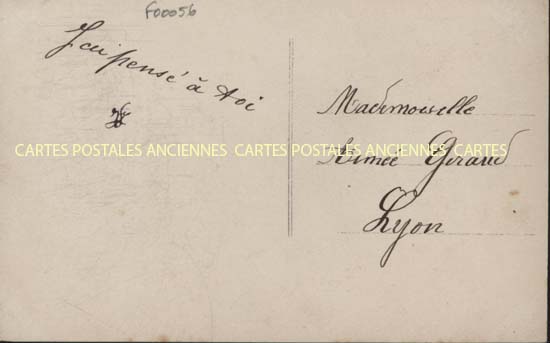 F00056
J'ai pensé à toi
Mademoiselle
Aimée Giraud
Lyon
CARTES POSTALES ANCIENNES CARTES POSTALES ANCIENNES CARTES